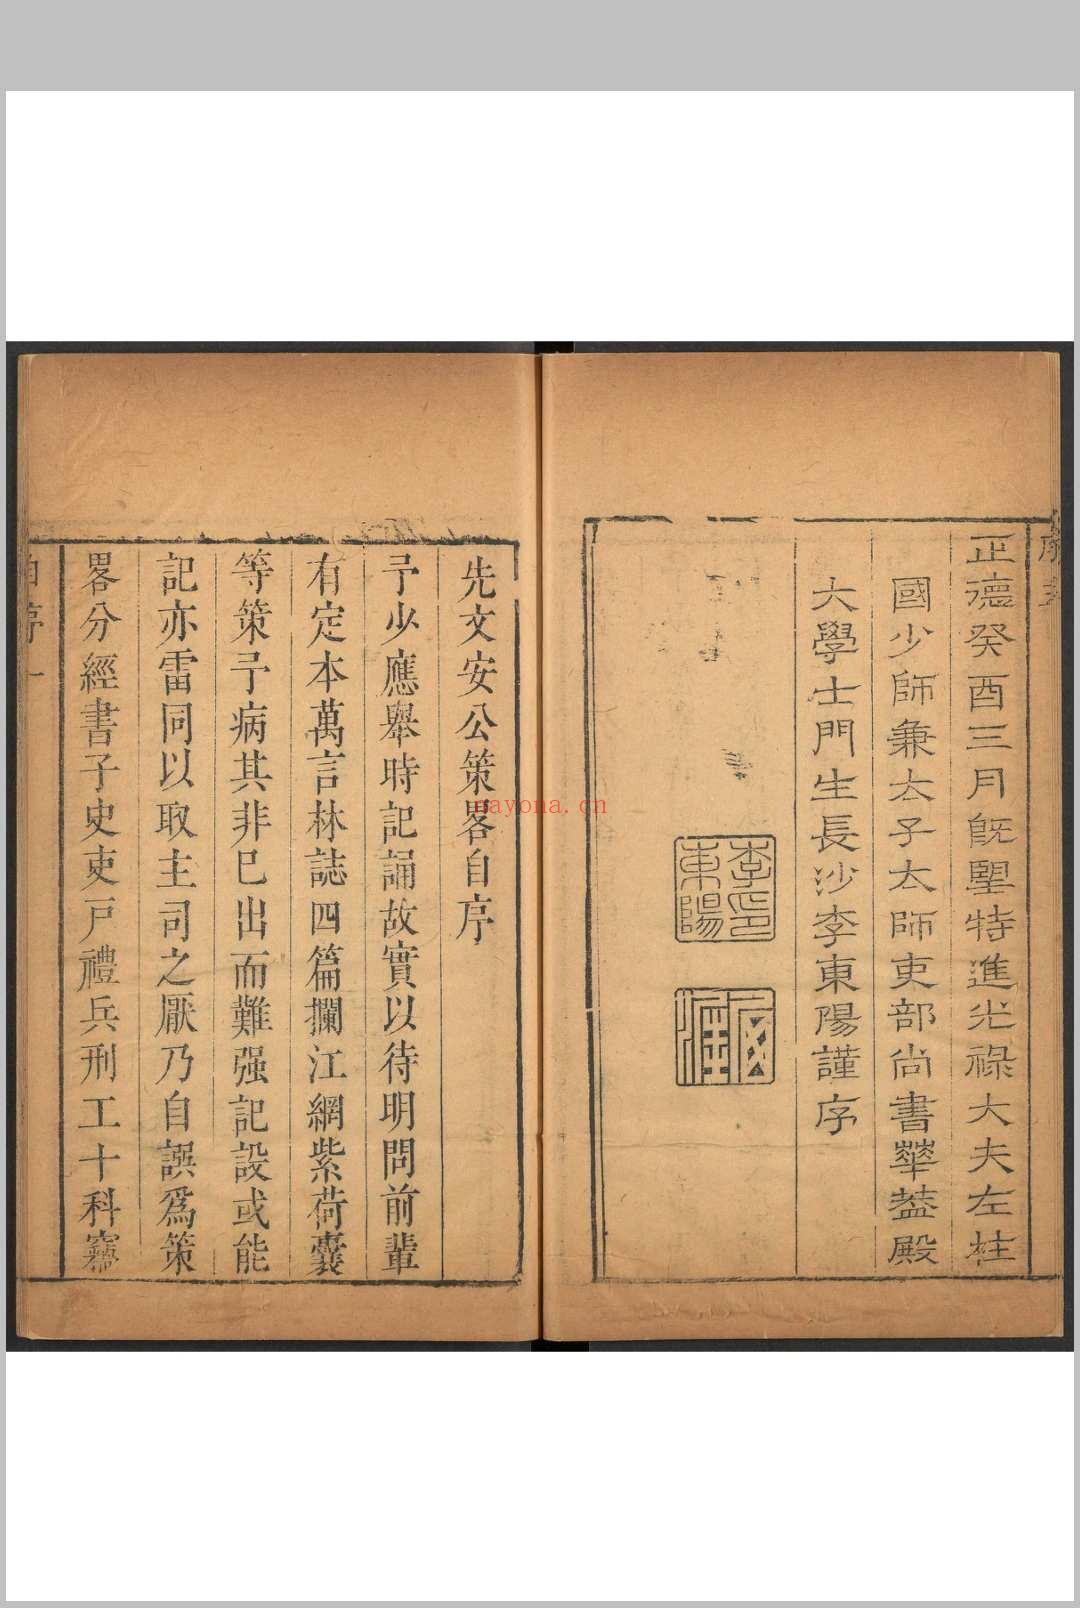 正德癸酉三月旣朢特進光祿大夫左柱
國少師兼太子太師吏部尚書華蓋殿
大學士門生長沙李東陽謹序
李東陽印
先文安公策畧自序
予少應舉時記誦故實以待明問前輩
有定本萬言林誌四篇攔江網紫荷囊
等策予病其非已出而難强記設或能
記亦雷同以取主司之厭乃自譔爲策
畧分經書子史吏戸禮兵刑工十科竊
自序 一
nayona.cn